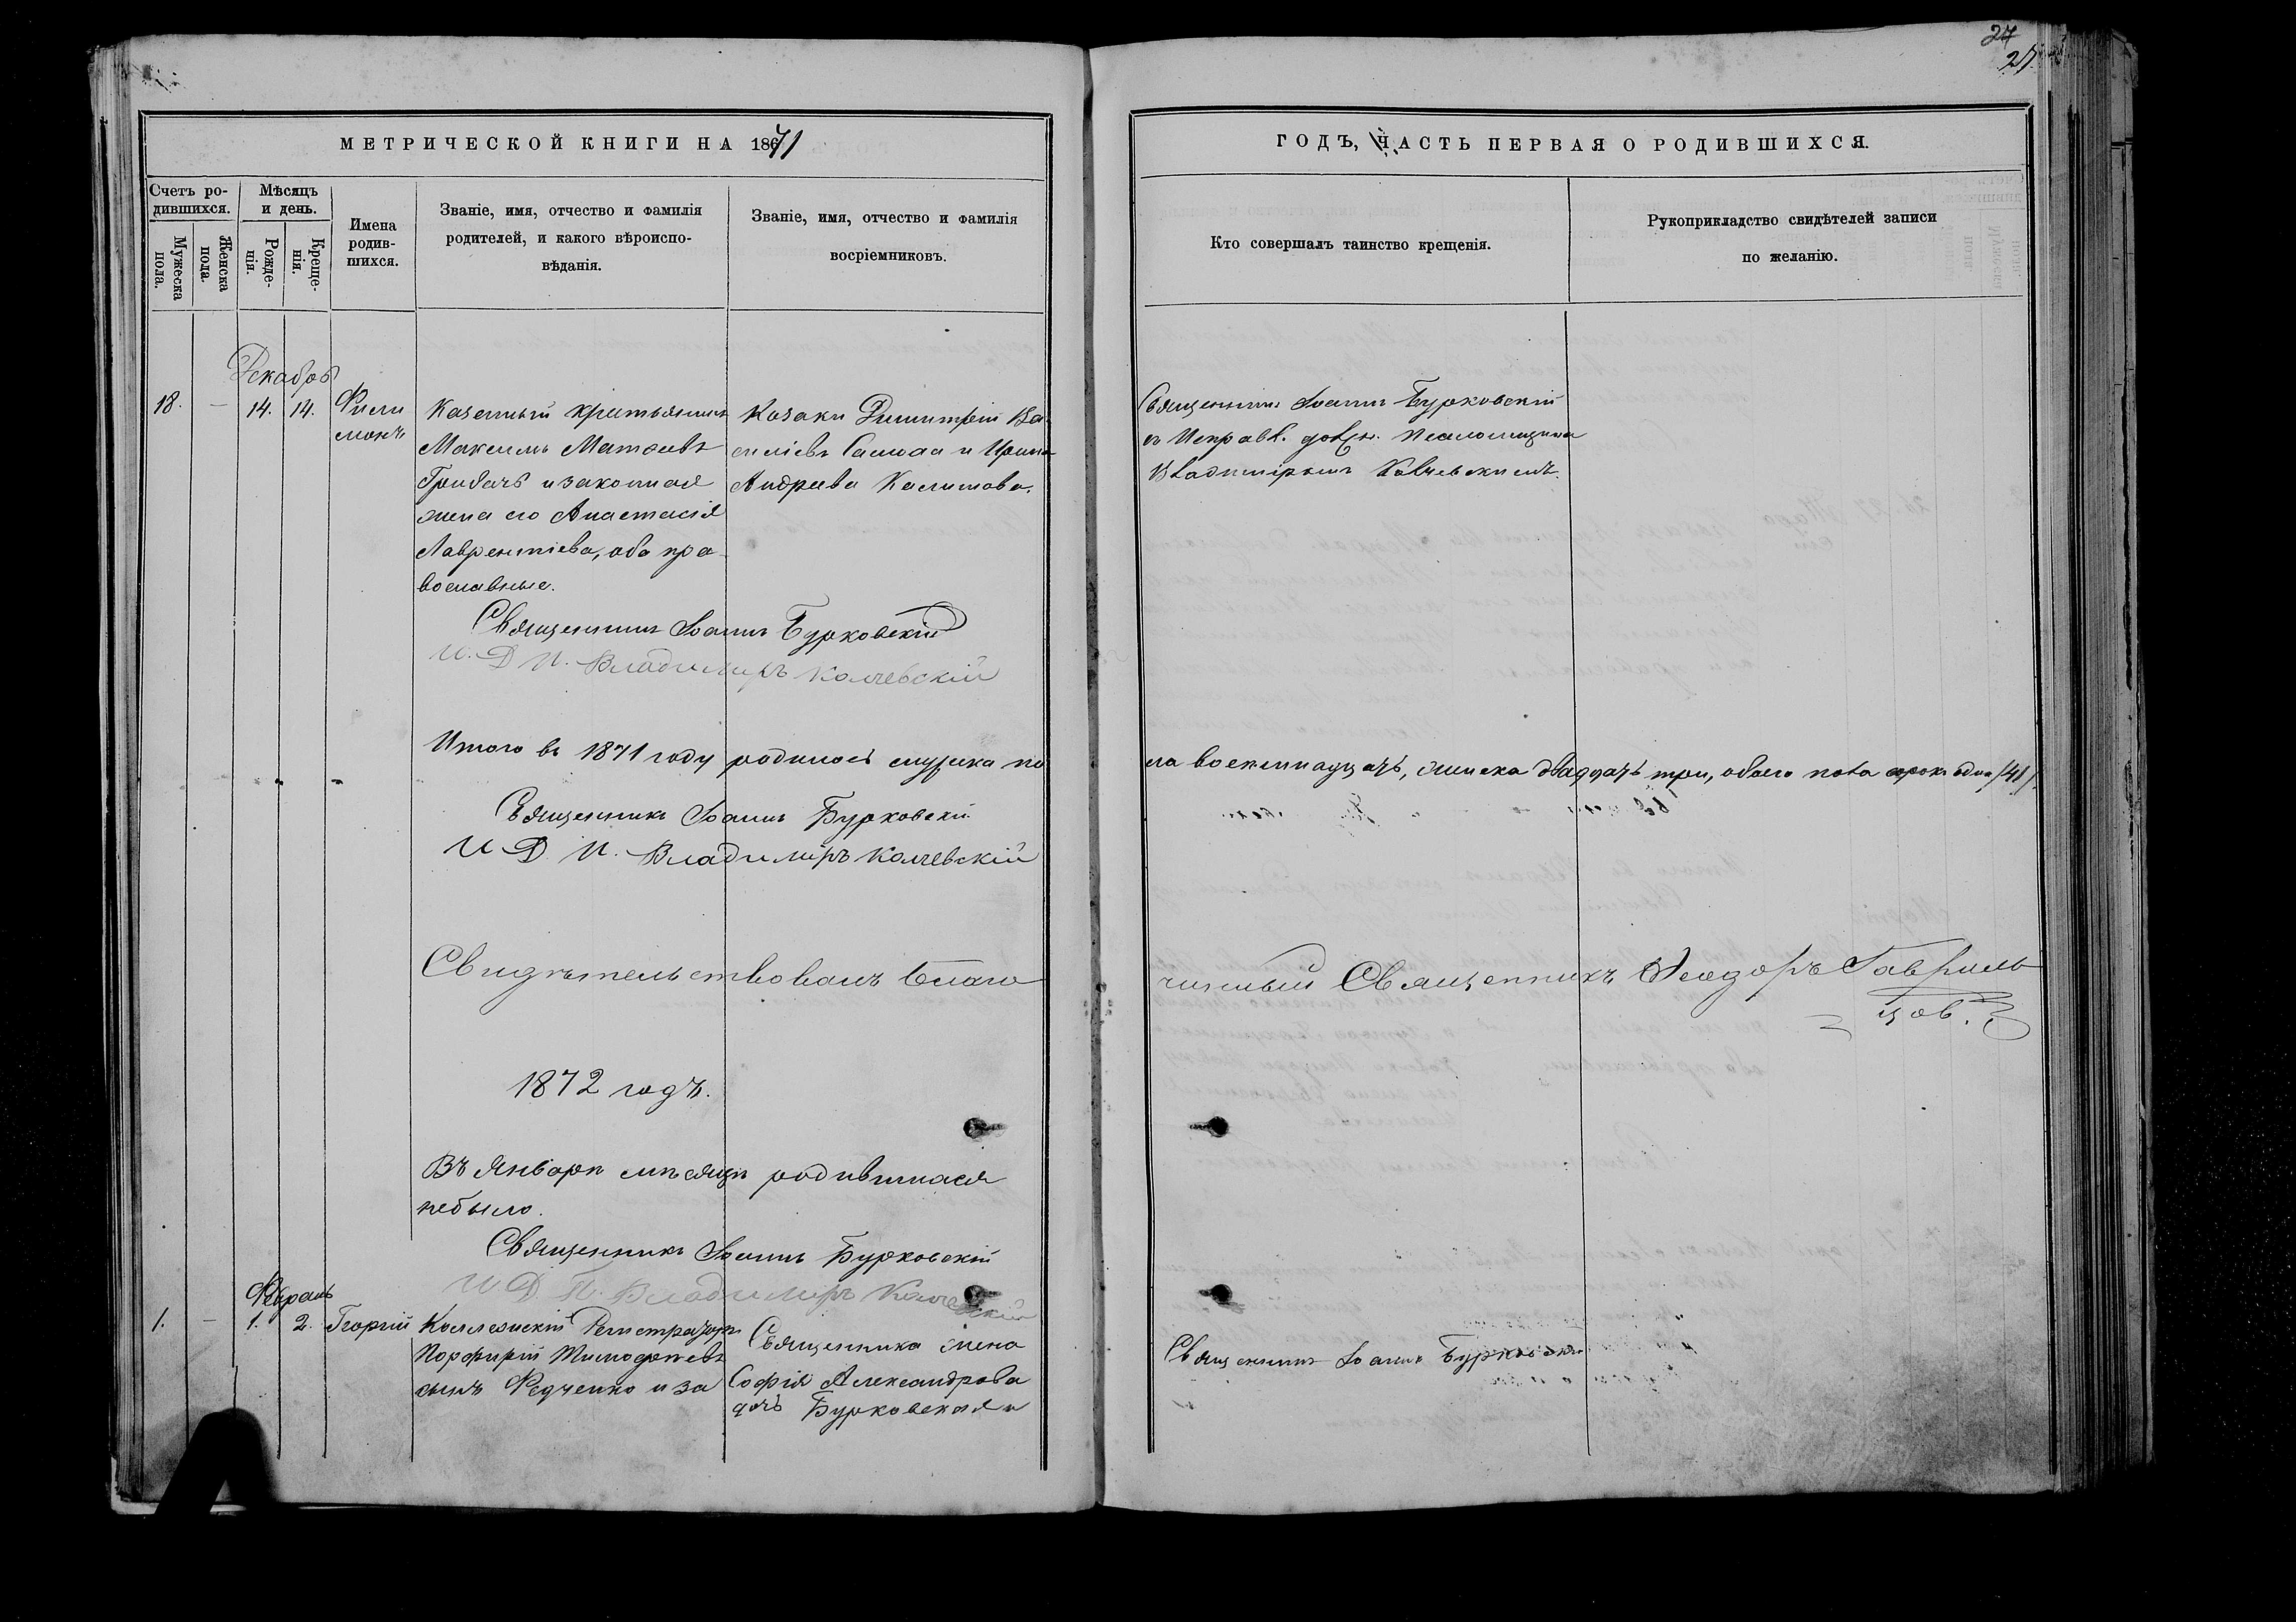 27
27
МЕТРИЧЕСКОЙ КНИГИ НА 1871
ГОДЪ, ЧАСТЬ ПЕРВАЯ О РОДИВШИХСЯ.
Счетъ ро-
дившихся.
Мужеска
пола.
Женска
пола.
Мѣсяцъ
и день.
Рожде-
нія.
Креще-
нія.
Имена
родив-
шихся.
Званіе, имя, отчество и фамилія
родителей, и какого вѣроиспо-
вѣданія.
Званіе, имя, отчество и фамилія
восріемниковъ.
Кто совершалъ таинство крещенія.
Рукоприкладство свидѣтелей записи
по желанію.
Декабрь
18. — 14. 14.
Фили
монъ
Казенный крестьянинъ
Максимъ Матѳіевъ
Грибачъ и законная
жена его Анастасія
Лаврентіева, оба пра-
вославные.
Козаки Димитрій Ва-
силіевъ и Ирина
Андреева
Священникъ Іоаннъ Бурковскій
съ Исправл. должн. Псаломщика
Владиміромъ Колчевскимъ.
Священникъ Іоаннъ Бурковскій
И. Д. П. Владимиръ Колчевскій
Итого въ 1871 году родилось мужеска по
ла восемнадцать, женска двадцать три, обоего пола сорокъ одинъ /41/.
Священникъ Іоаннъ Бурковскій
И. Д. П. Владимиръ Колчевскій
Свидѣтельствовалъ Благо
чинный Священникъ Ѳеодоръ Гавриль
цов.
1872 годъ.
Въ Январѣ мѣсяцѣ родившихся
небыло.
Священникъ Іоаннъ Бурковскій
И. Д. П. Владимиръ Колчевскій
Февраль
1. — 1. 2. Георгій
Коллежскій Регистраторъ
Порфирій Тимоѳеевъ
сынъ Федченко и за
Священника жена
Софія Александрова
дочь Бурковская и
Священникъ Іоаннъ Бурковскій